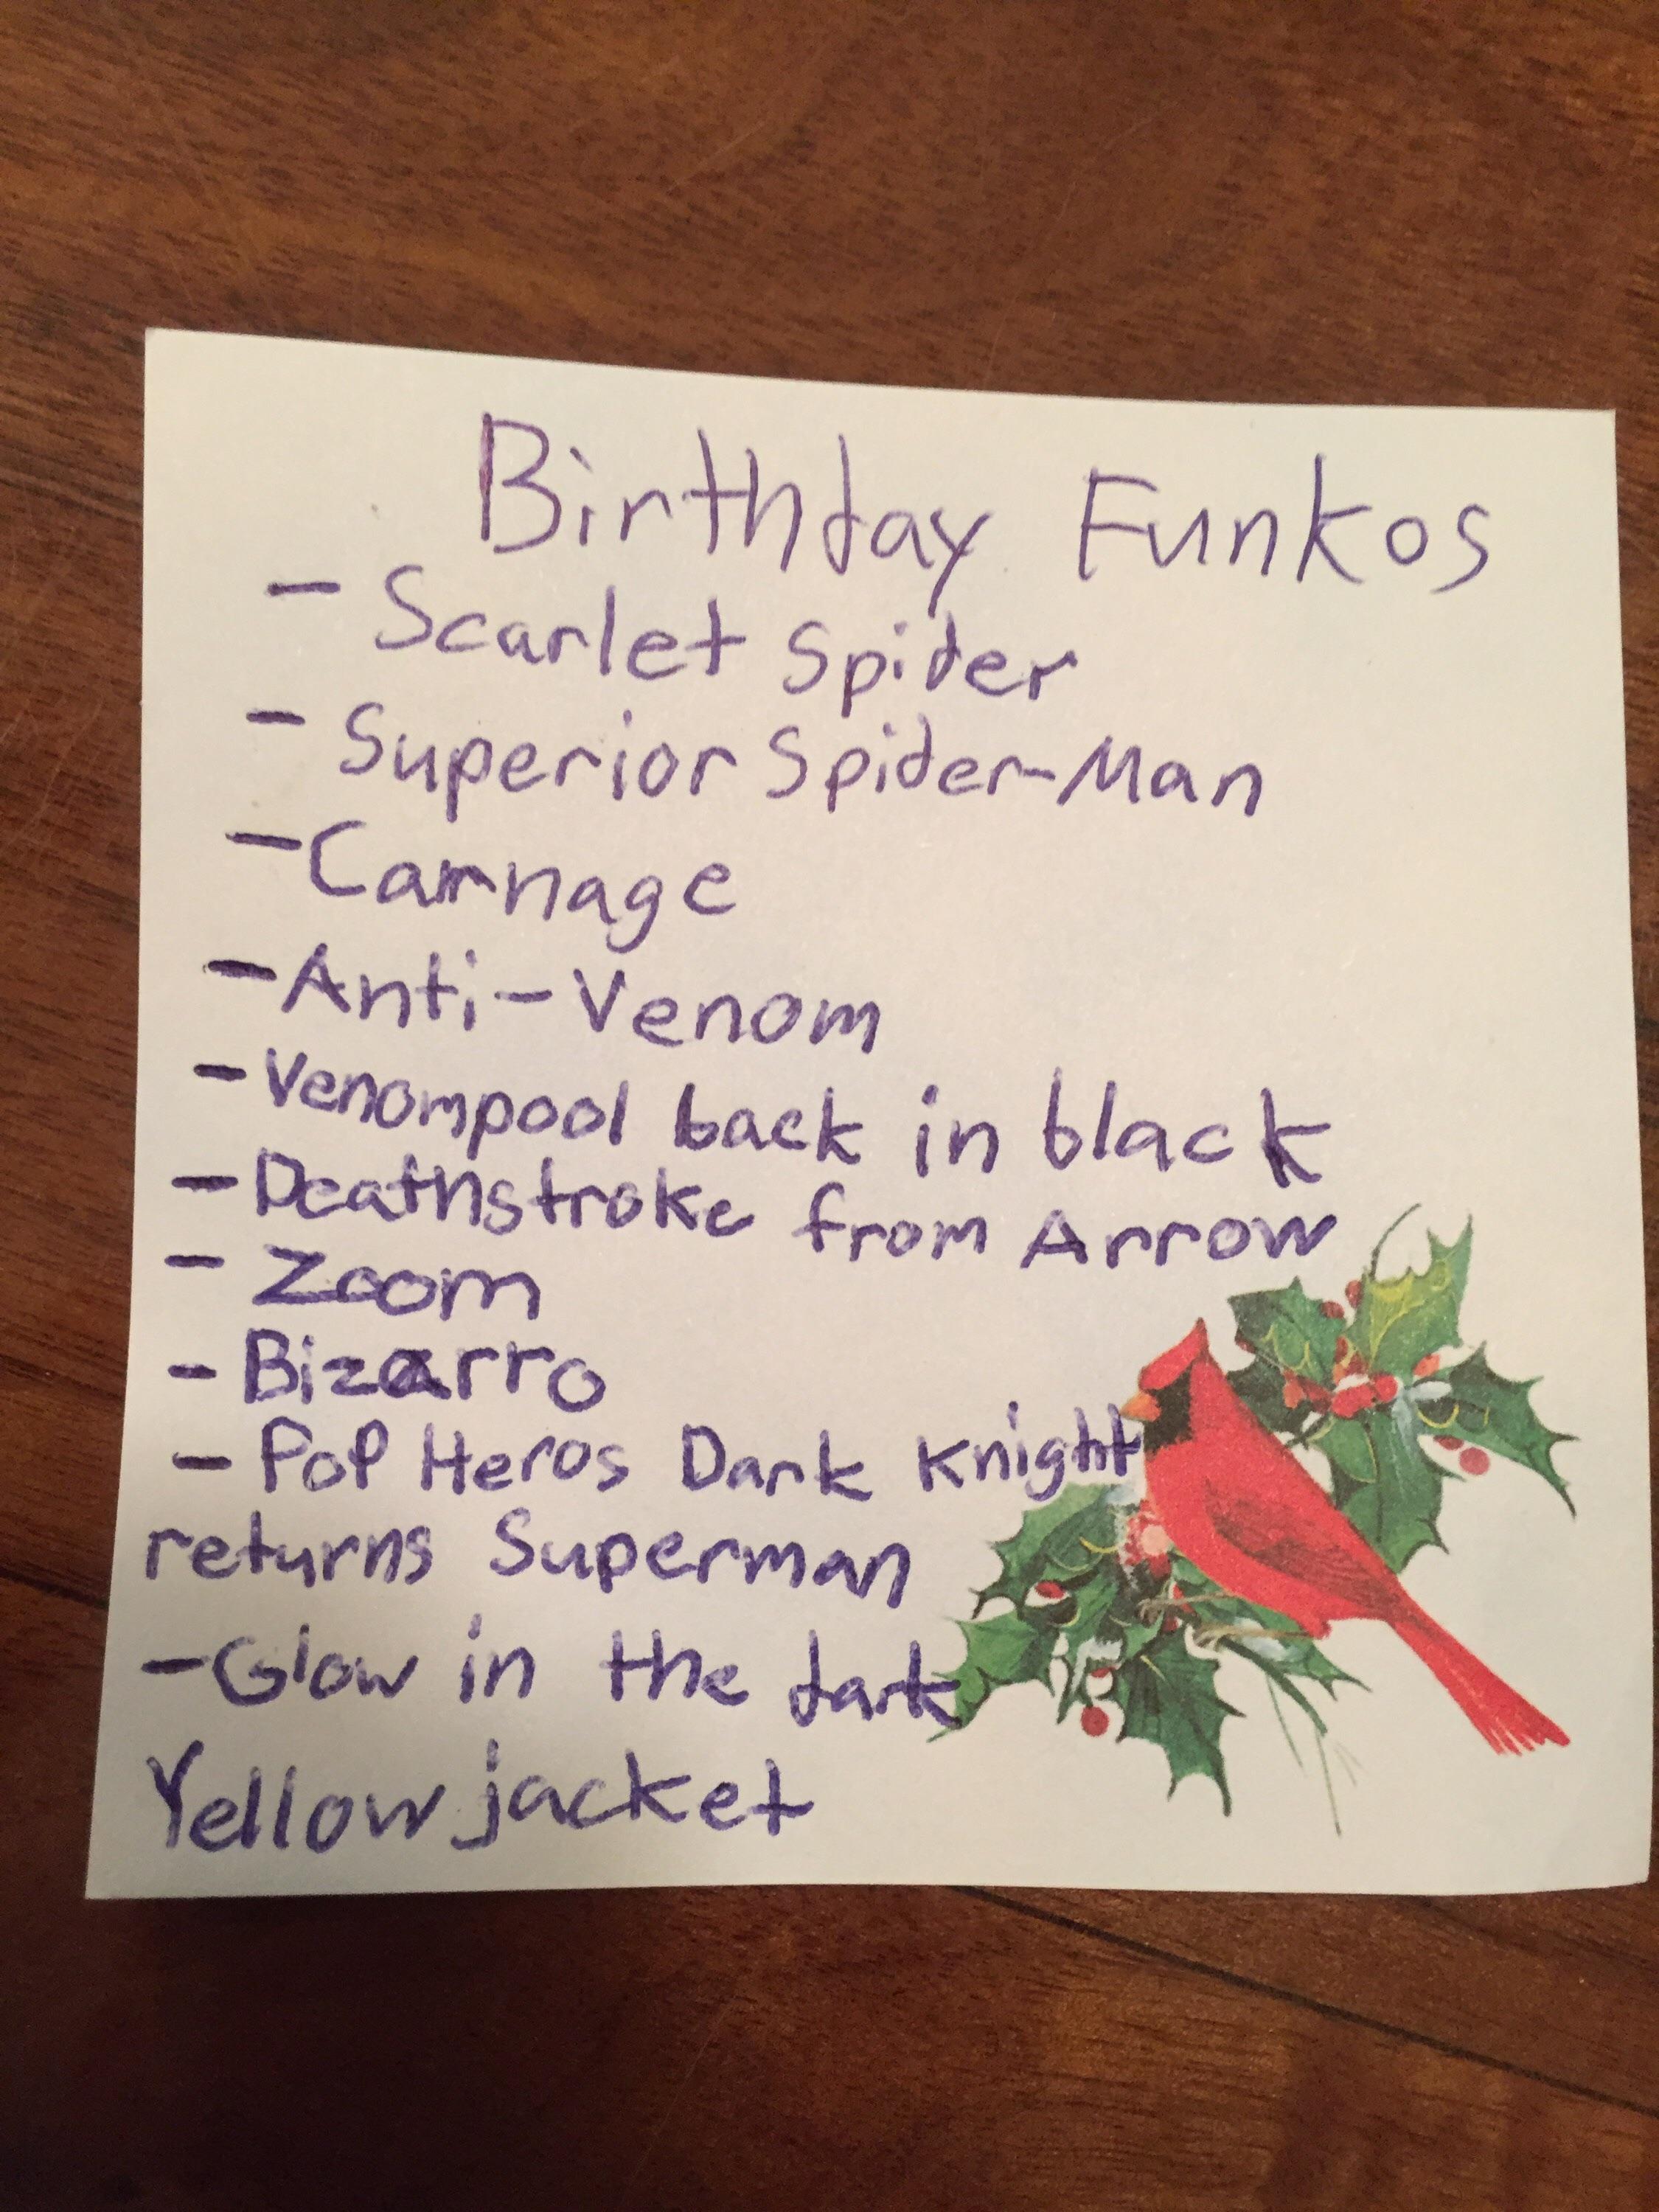 Birthday Funkos
- Scarlet Spider
- Superior Spider-Man
- Carnage
- Anti-Venom
- Venompool back in black
- Deathstroke from Arrow
- Zoom
- Bizarro
- Pop Heros Dark Knight
returns Superman
- Glow in the dark
Yellow jacket